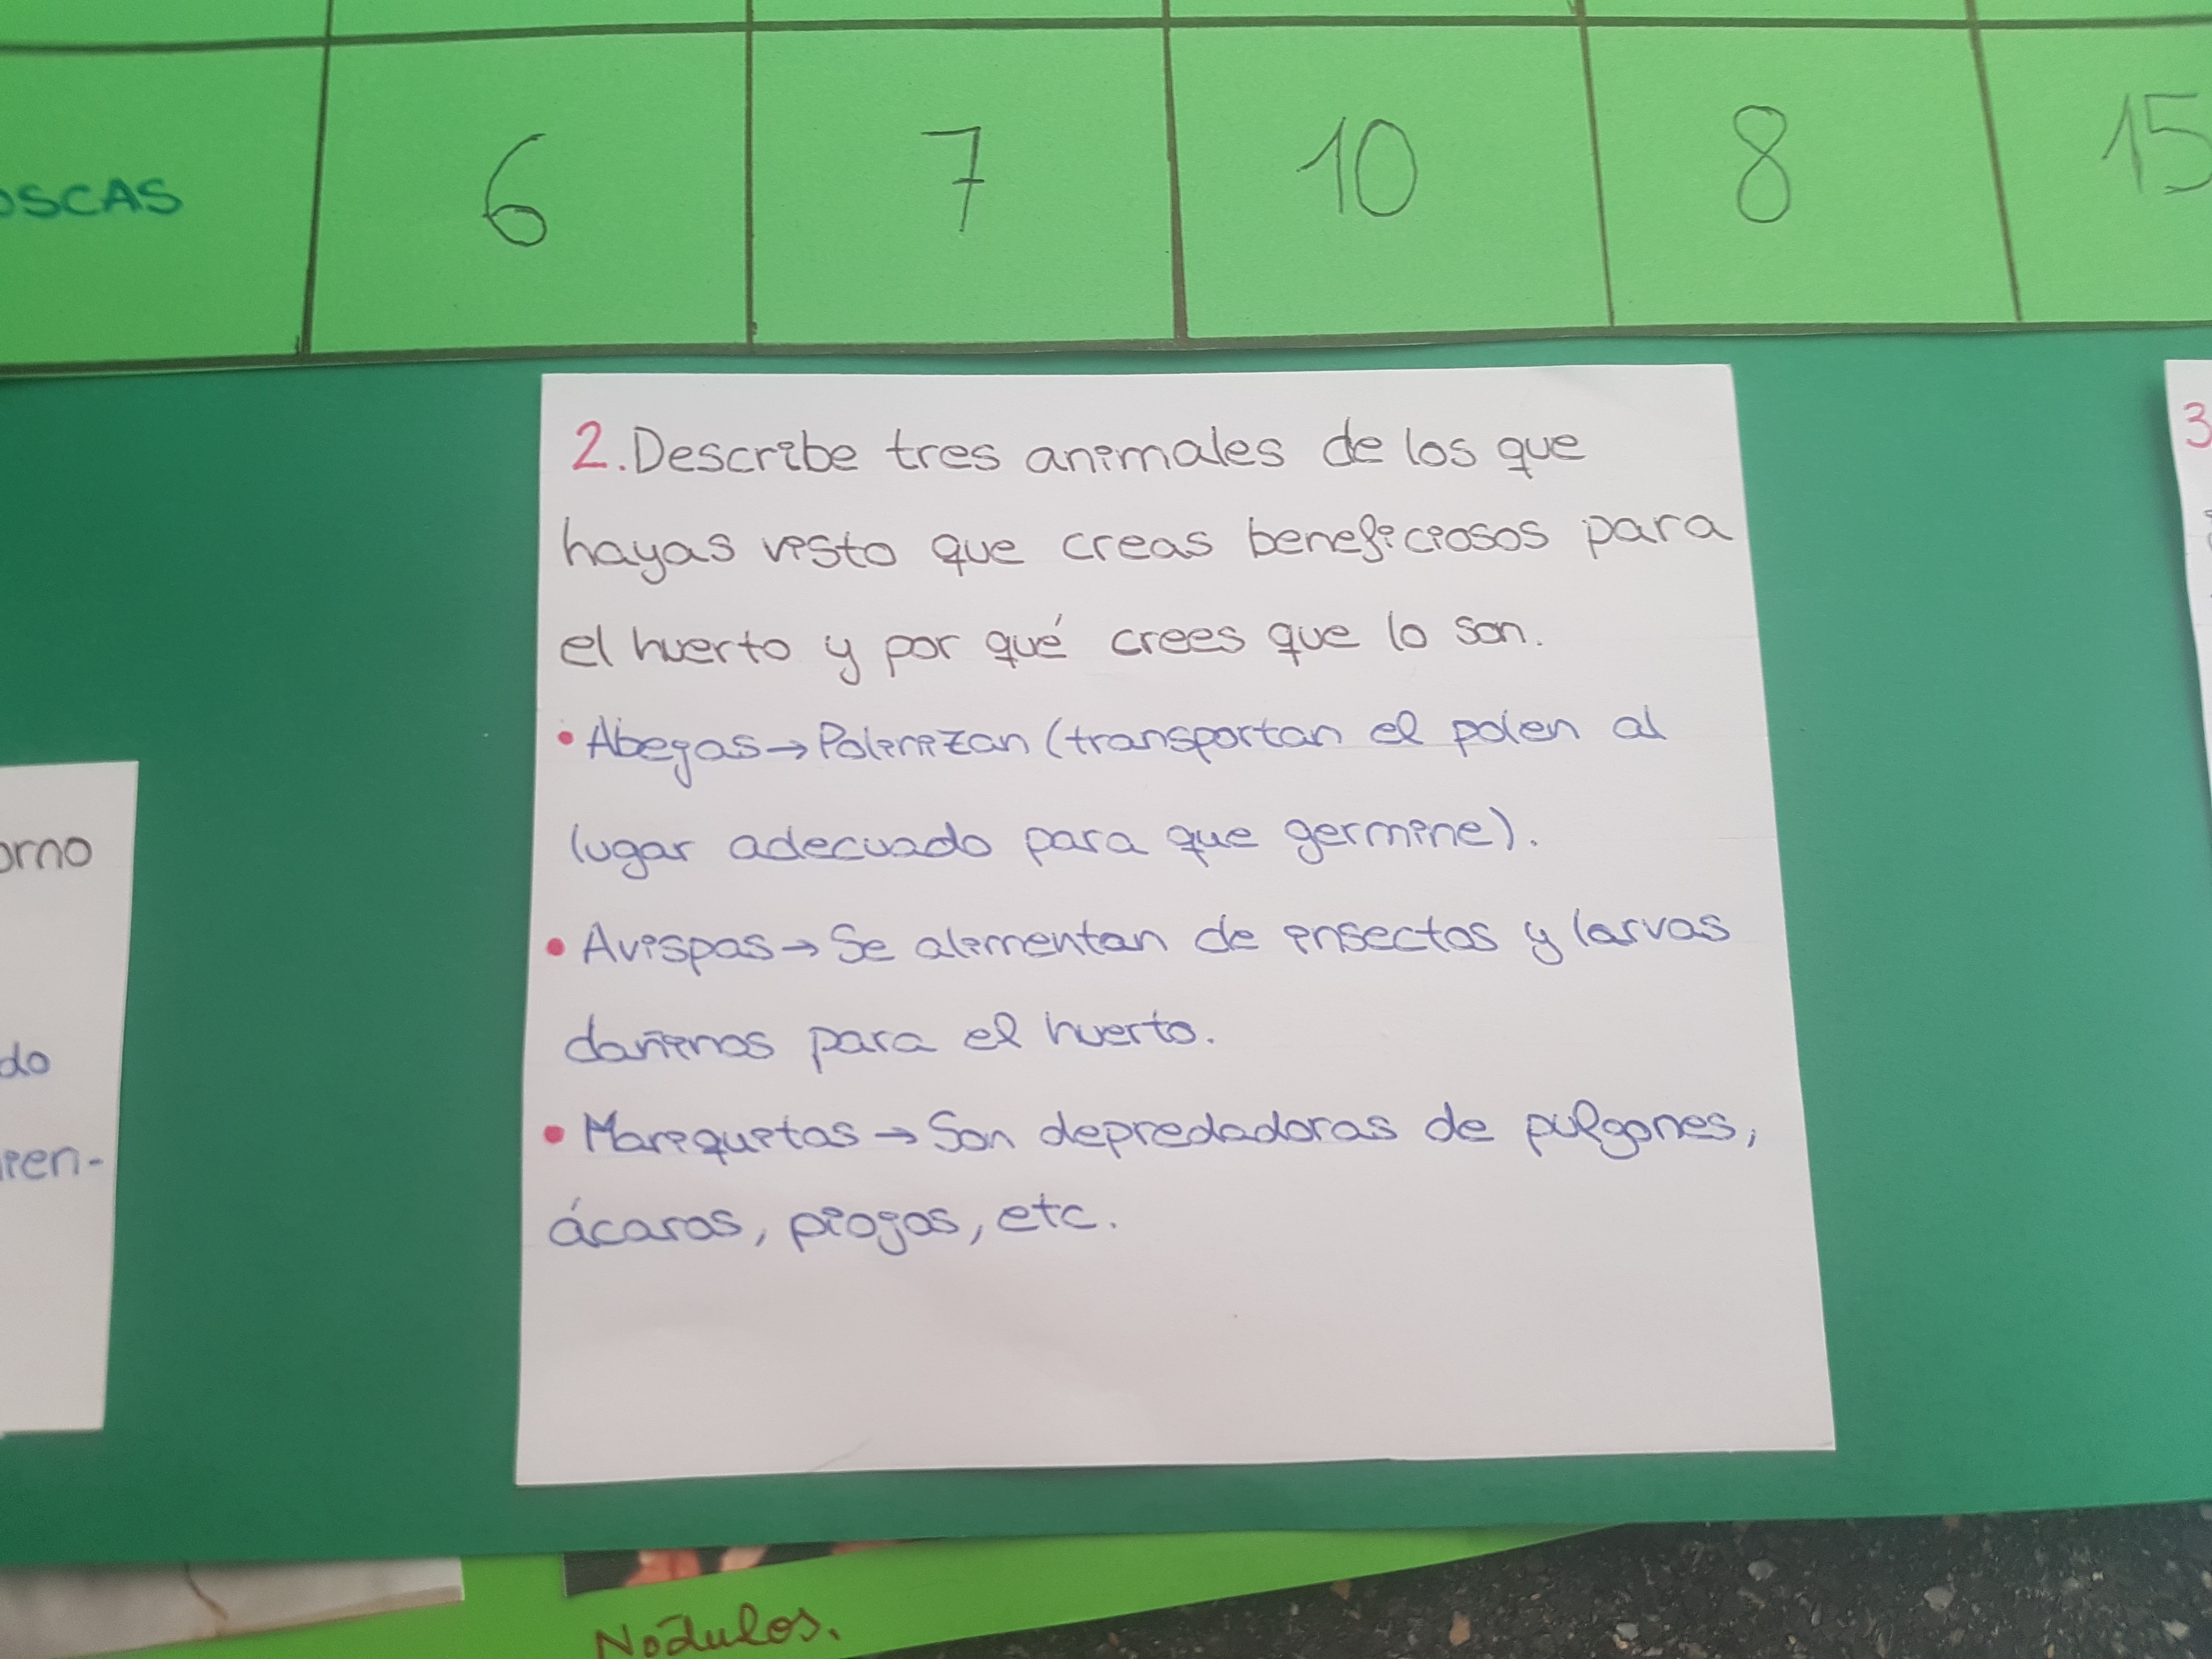 OSCAS 6 7 10 8 15
2. Describe tres animales de los que
hayas visto que creas beneficiosos para
el huerto y por qué crees que lo son.
• Abejas → Polinizan (transportan el polen al
lugar adecuado para que germine).
• Avispas → Se alimentan de insectos y larvas
dañinos para el huerto.
• Mariquitas → Son depredadoras de pulgones,
ácaros, piojos, etc.
3
orno
do
ien-
Nódulos.